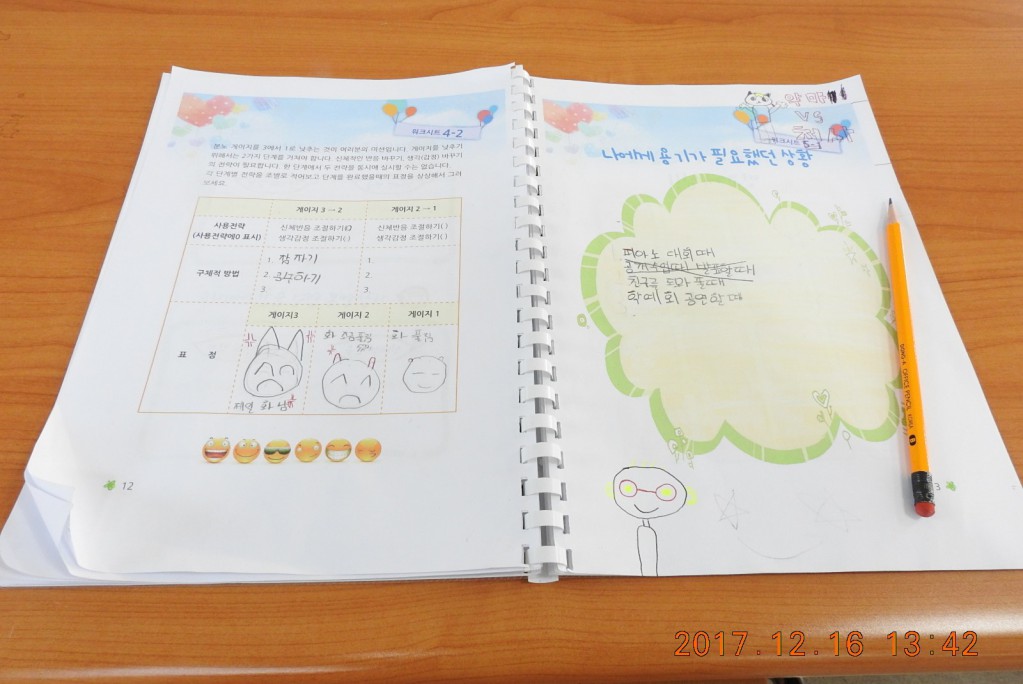 워크시트 4-2
분노 게이지를 3에서 1로 낮추는 것이 여러분의 미션입니다. 게이지를 낮추기
위해서는 2가지 단계를 거쳐야 합니다. 신체적인 반응 바꾸기, 생각(감정) 바꾸기
의 전략이 필요합니다. 한 단계에서 두 전략을 동시에 실시할 수는 없습니다.
각 단계별 전략을 조별로 적어보고 단계를 완료했을때의 표정을 상상해서 그려
보세요.
게이지 3 → 2
게이지 2 → 1
사용전략
(사용전략에O 표시)
신체반응 조절하기(O)
생각감정 조절하기( )
신체반응 조절하기( )
생각감정 조절하기( )
구체적 방법
1. 잠자기
2.
3
1.
2.
3.
게이지3
게이지 2
게이지 1
표 정
화 조금 풀림
화 풀림
제일 화 남
12
VS
워크시트 5-1
나에게 용기가 필요했던 상황
피아노 대회 때
친구랑
학예회 공연할 때
3
2017.12.16 13:42